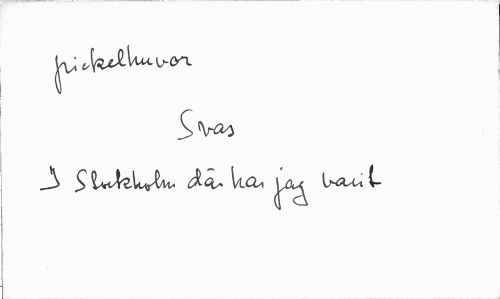 pickelhuvor
Svas
I Stockholm där har jag varit